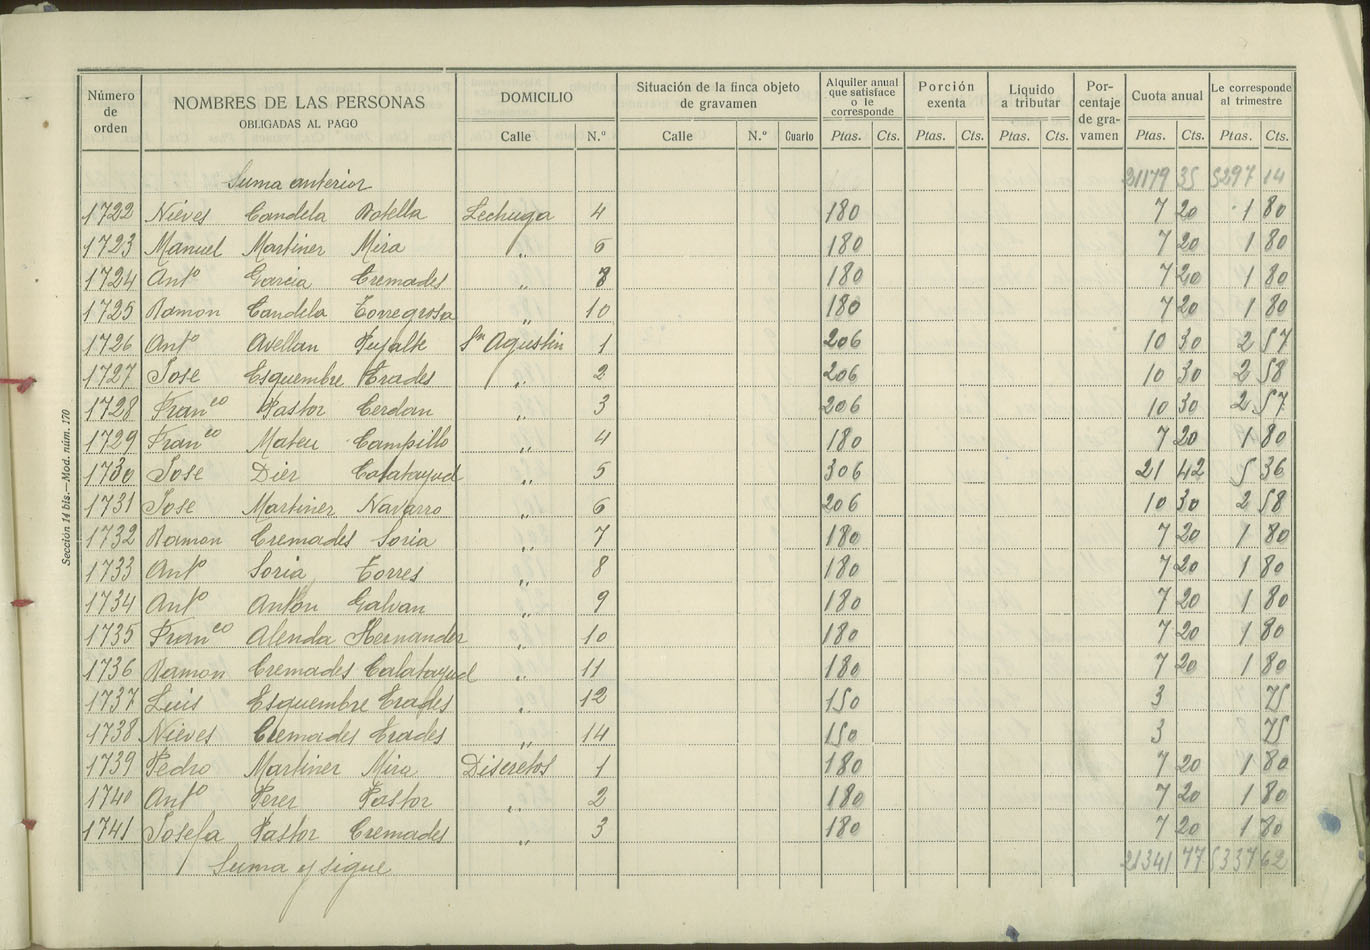 Número de orden | NOMBRES DE LAS PERSONAS OBLIGADAS AL PAGO | DOMICILIO Calle | N.º | Situación de la finca objeto de gravamen Calle | N.º | Cuarto | Alquiler anual que satisface o le corresponde Ptas. | Cts. | Porción exenta Ptas. | Cts. | Líquido a tributar Ptas. | Cts. | Porcentaje de gravamen | Cuota anual Ptas. | Cts. | Le corresponde al trimestre Ptas. | Cts.
Suma anterior 21179 35 5297 14
1722 Nieves Candela Botella Lechuga 4 180 7 20 1 80
1723 Manuel Martinez Mira " 6 180 7 20 1 80
1724 Antº Garcia Cremades " 8 180 7 20 1 80
1725 Ramon Candela Torregrosa " 10 180 7 20 1 80
1726 Antº Avellan Pujalte Sn Agustin 1 206 10 30 2 57
1727 Jose Esquembre Erades " 2 206 10 30 2 58
1728 Franco Pastor Cerdan " 3 206 10 30 2 57
1729 Franco Mateu Campillo " 4 180 7 20 1 80
1730 Jose Diez Calatayud " 5 306 21 42 5 36
1731 Jose Martinez Navarro " 6 206 10 30 2 58
1732 Ramon Cremades Soria " 7 180 7 20 1 80
1733 Antº Soria Torres " 8 180 7 20 1 80
1734 Antº Antón Galvan " 9 180 7 20 1 80
1735 Franco Alenda Hernandez " 10 180 7 20 1 80
1736 Ramon Cremades Calatayud " 11 180 7 20 1 80
1737 Luis Esquembre Erades " 12 150 3 75
1738 Nieves Cremades Erades " 14 150 3 75
1739 Pedro Martinez Mira Discretos 1 180 7 20 1 80
1740 Antº Perez Pastor " 2 180 7 20 1 80
1741 Josefa Pastor Cremades " 3 180 7 20 1 80
Suma y sigue 21341 77 5337 62
Sección 14 bis.—Mod. núm. 170